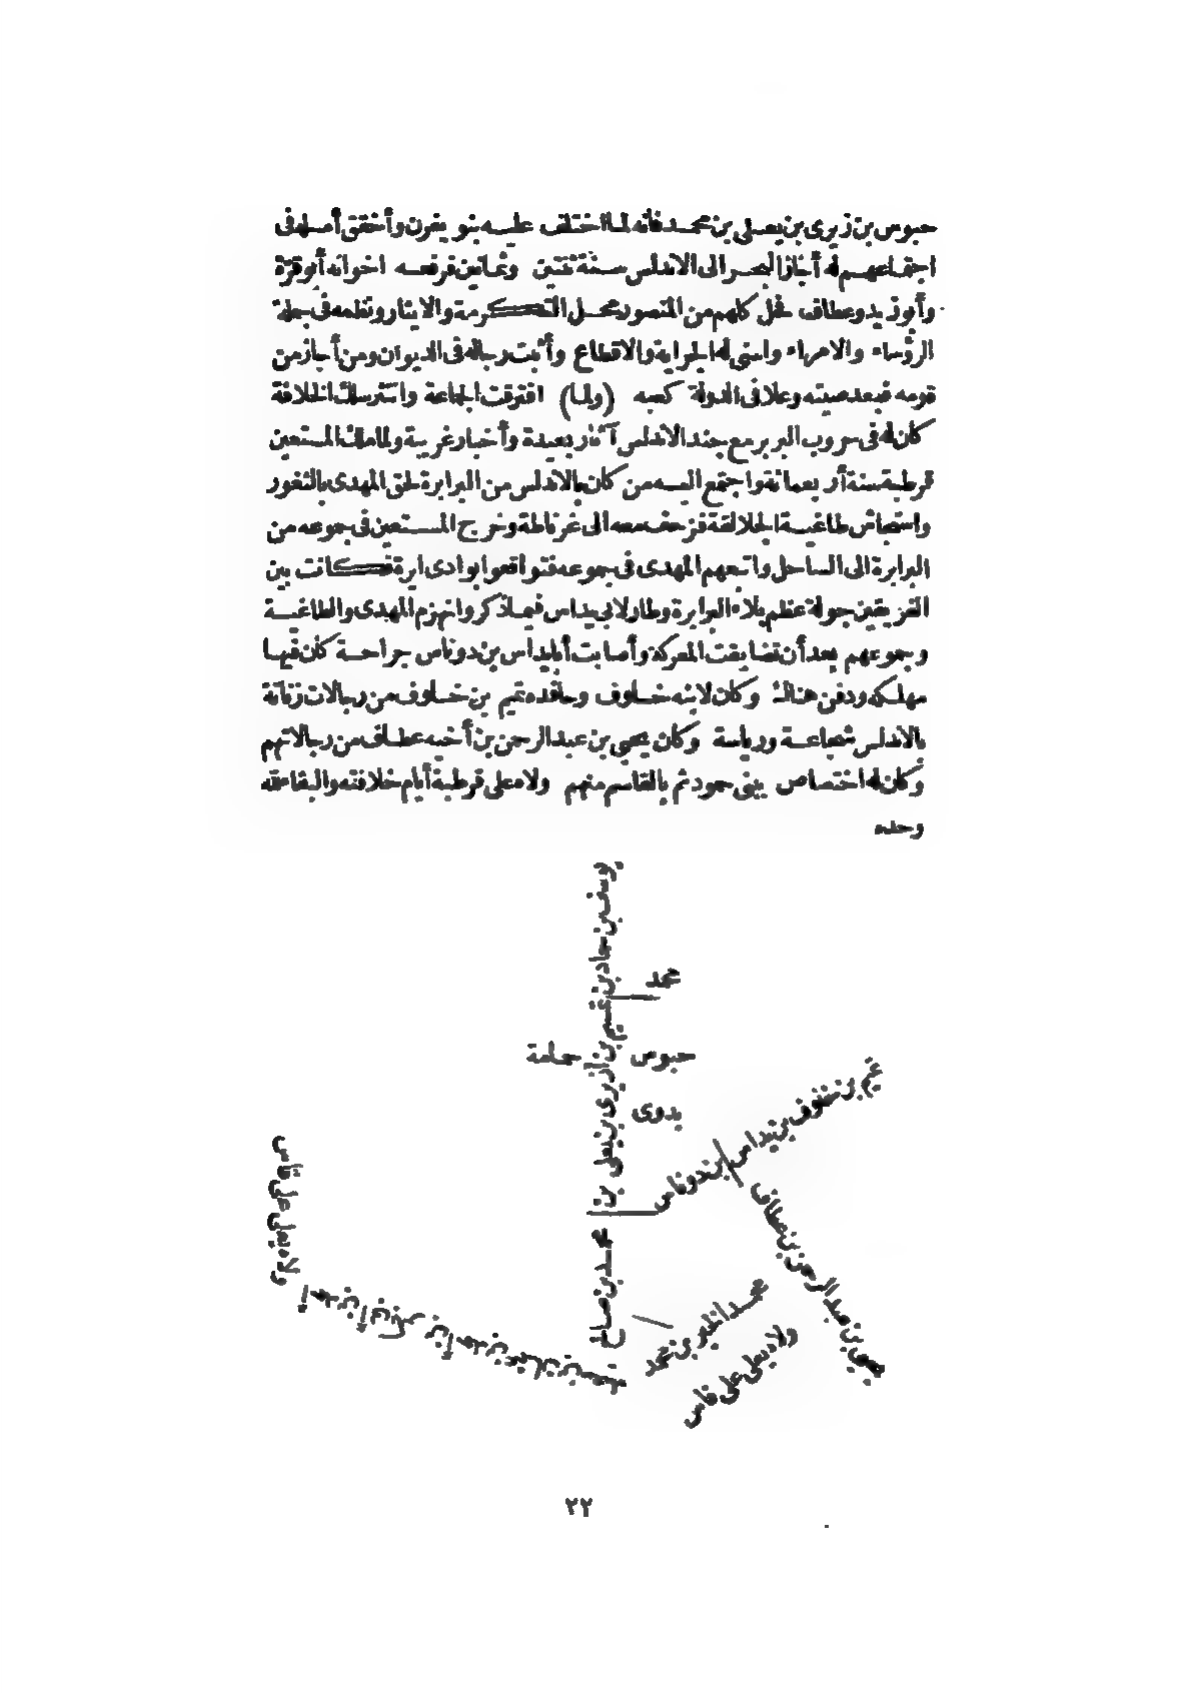 حبوس بن زيرى بن يعلى بن محمد فانه لما اختلف عليه بنو يفرن وأخفق أمله فى
اجتماعهم له أجاز البحر الى الاندلس سنة ثنتين وثمانين فرفعه اخوانه أبو قرة
وأبو زيد وعطاف فحل كلهم من المنصور محل التكرمة والايثار ونظمه فى جملة
الرؤساء والامراء واسنى له الجراية والاقطاع وأثبت رجاله فى الديوان ومن أجاز من
قومه فبعد صيته وعلا فى الدولة كعبه (ولما) افترقت الجماعة وانتثر سلك الخلافة
كان له فى حروب البربر مع جند الاندلس آثار بعيدة وأخبار غريبة ولما ملك المستعين
قرطبة سنة أربعمائة واجتمع اليه من كان بالاندلس من البرابرة لحق المهدى بالثغور
واستجاش طاغية الجلالقة فزحف معه الى غرناطة وخرج المستعين فى جموعه من
البرابرة الى الساحل واتبعهم المهدى فى جموعه فتواقعوا بوادى ايرة فكانت بين
الفريقين جولة عظم بلاء البرابرة وطار لابى يداس فيها ذكر وانهزم المهدى والطاغية
وجموعهم بعد أن تضايقت المعركة وأصابت أبا يداس بن دوناس جراحة كان فيها
مهلكه ودفن هنالك وكان لابنه خلوف وحافده تميم بن خلوف من رجالات زناتة
بالاندلس شجاعة ورياسة وكان يحيى بن عبد الرحمن بن أخيه عطاف من رجالاتهم
وكان له اختصاص ببنى حمود ثم بالقاسم منهم ولاه على قرطبة أيام خلافته والبقاء لله
وحده
يوسف بن حماد بن تميم بن زيرى بن يعلى بن محمد بن صالح
محمد
حبوس
حمامة
بدوى
تميم بن خلوف بن يداس بن دوناس
يحيى بن عبد الرحمن بن عطاف
محمد الخير بن محمد
ولاه يعلى على فاس
ولاه يعلى على فاس
٢٢